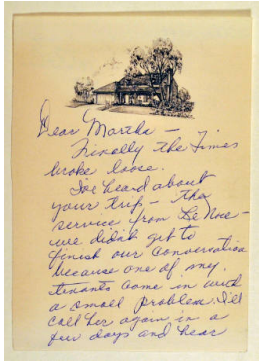 Dear Martha –
Finally the Times
broke loose.
I've heard about
your trip – the
service from
we didn't get to
finish our conversation
because one of my
tenants come in with
a small problem. I'll
call her again in a
few days and hear